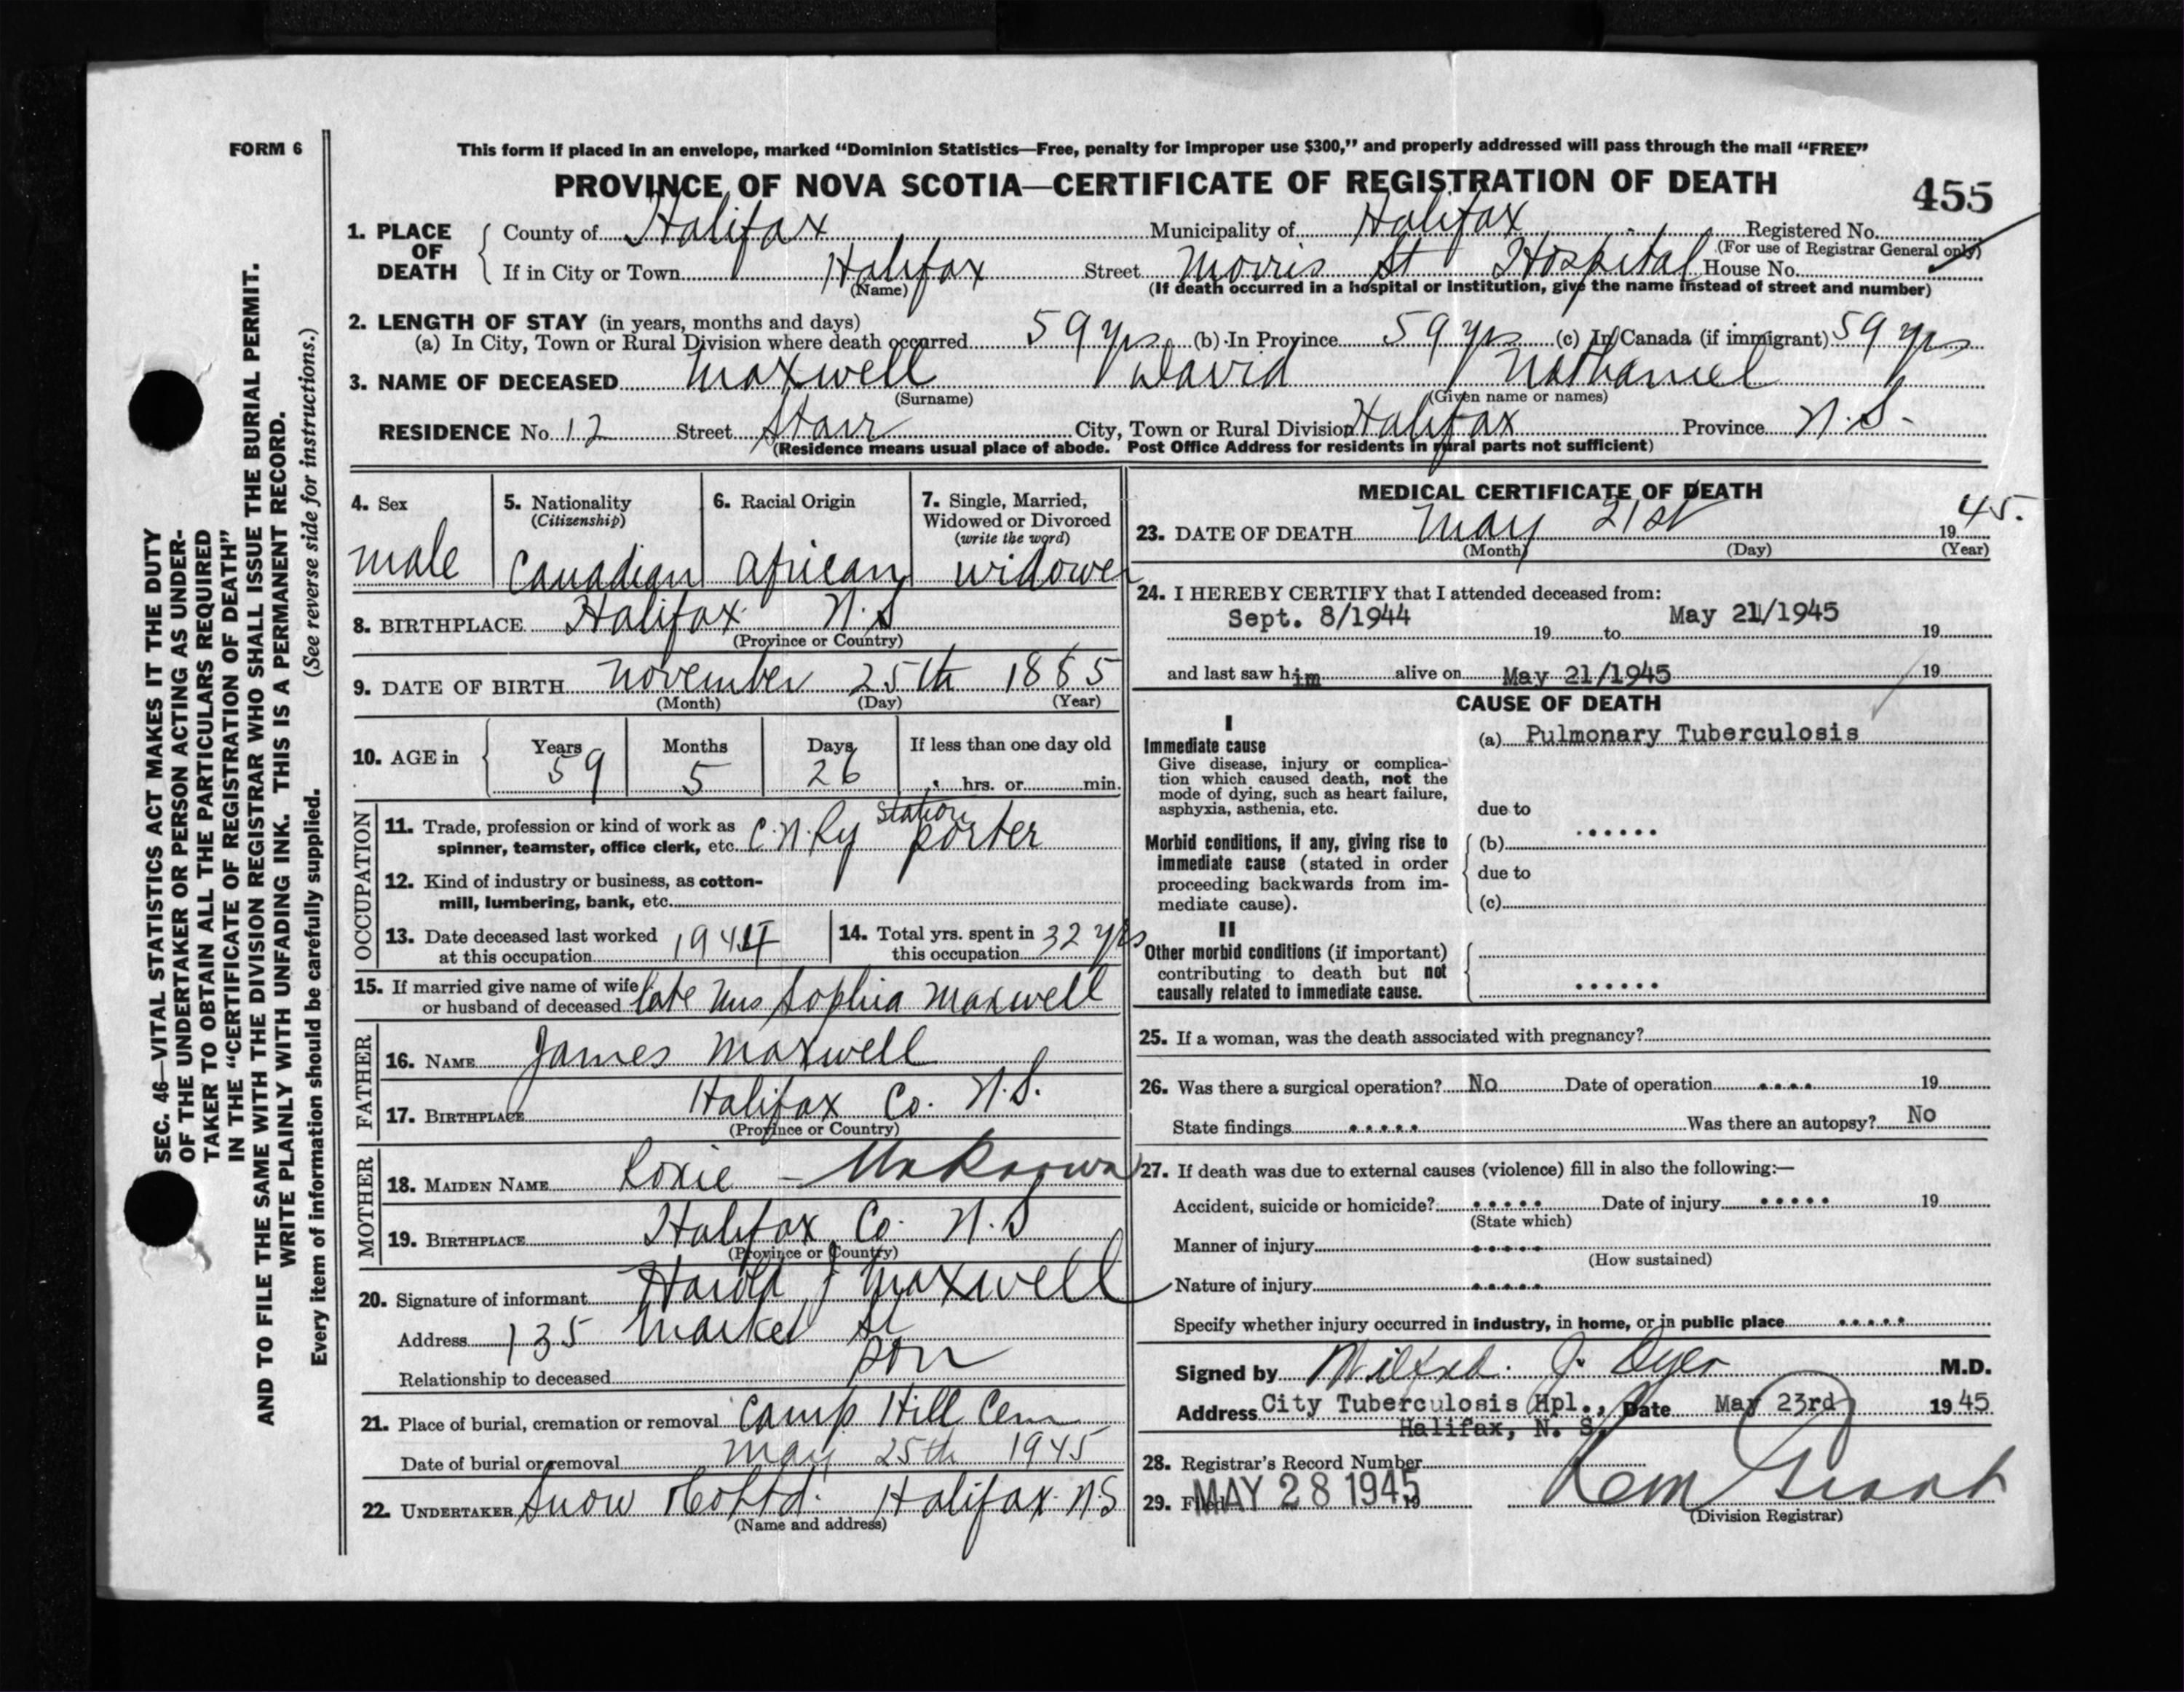 FORM 6
This form if placed in an envelope, marked “Dominion Statistics—Free, penalty for improper use $300,” and properly addressed will pass through the mail “FREE”
PROVINCE OF NOVA SCOTIA—CERTIFICATE OF REGISTRATION OF DEATH
455
1. PLACE OF DEATH
County of Halifax Municipality of Halifax Registered No.
(For use of Registrar General only)
If in City or Town Halifax Street Morris St Hospital House No.
(Name) (If death occurred in a hospital or institution, give the name instead of street and number)
2. LENGTH OF STAY (in years, months and days)
(a) In City, Town or Rural Division where death occurred 59 yrs (b) In Province 59 yrs (c) In Canada (if immigrant) 59 yrs
3. NAME OF DECEASED Maxwell David Nathaniel
(Surname) (Given name or names)
RESIDENCE No. 12 Street Starr City, Town or Rural Division Halifax Province N.S.
(Residence means usual place of abode. Post Office Address for residents in rural parts not sufficient)
4. Sex
male
5. Nationality
(Citizenship)
Canadian
6. Racial Origin
African
7. Single, Married,
Widowed or Divorced
(write the word)
widower
8. BIRTHPLACE Halifax N.S
(Province or Country)
9. DATE OF BIRTH November 25th 1885
(Month) (Day) (Year)
10. AGE in
Years Months Days If less than one day old
59 5 26 hrs. or min.
OCCUPATION
11. Trade, profession or kind of work as
spinner, teamster, office clerk, etc. C.N.Ry Station porter
12. Kind of industry or business, as cotton-
mill, lumbering, bank, etc.
13. Date deceased last worked
at this occupation 1944
14. Total yrs. spent in
this occupation 32 yrs
15. If married give name of wife
or husband of deceased late Mrs Sophia Maxwell
FATHER
16. NAME James Maxwell
17. BIRTHPLACE Halifax Co. N.S.
(Province or Country)
MOTHER
18. MAIDEN NAME Roxie — Unknown
19. BIRTHPLACE Halifax Co. N.S
(Province or Country)
20. Signature of informant Harold J Maxwell
Address 135 Market St
Relationship to deceased son
21. Place of burial, cremation or removal Camp Hill Cem
Date of burial or removal May 25th 1945
22. UNDERTAKER Snow & Co Ltd. Halifax N.S
(Name and address)
MEDICAL CERTIFICATE OF DEATH
23. DATE OF DEATH May 21st 1945.
(Month) (Day) (Year)
24. I HEREBY CERTIFY that I attended deceased from:
Sept. 8/1944 19 to May 21/1945 19
and last saw him alive on May 21/1945 19
CAUSE OF DEATH
I
Immediate cause
Give disease, injury or complica-
tion which caused death, not the
mode of dying, such as heart failure,
asphyxia, asthenia, etc.
(a) Pulmonary Tuberculosis
due to
Morbid conditions, if any, giving rise to
immediate cause (stated in order
proceeding backwards from im-
mediate cause).
(b) ......
due to
(c)
II
Other morbid conditions (if important)
contributing to death but not
causally related to immediate cause.
......
25. If a woman, was the death associated with pregnancy?
26. Was there a surgical operation? No Date of operation .... 19
State findings ..... Was there an autopsy? No
27. If death was due to external causes (violence) fill in also the following:—
Accident, suicide or homicide? ..... Date of injury ..... 19
(State which)
Manner of injury .....
(How sustained)
Nature of injury .....
Specify whether injury occurred in industry, in home, or in public place .....
Signed by Wilfred J. Dyer M.D.
Address City Tuberculosis Hpl., Date May 23rd 1945
Halifax, N. S.
28. Registrar's Record Number
29. Filed MAY 28 1945 19
(Division Registrar)
SEC. 46—VITAL STATISTICS ACT MAKES IT THE DUTY
OF THE UNDERTAKER OR PERSON ACTING AS UNDER-
TAKER TO OBTAIN ALL THE PARTICULARS REQUIRED
IN THE “CERTIFICATE OF REGISTRATION OF DEATH”
AND TO FILE THE SAME WITH THE DIVISION REGISTRAR WHO SHALL ISSUE THE BURIAL PERMIT.
WRITE PLAINLY WITH UNFADING INK. THIS IS A PERMANENT RECORD.
Every item of information should be carefully supplied. (See reverse side for instructions.)